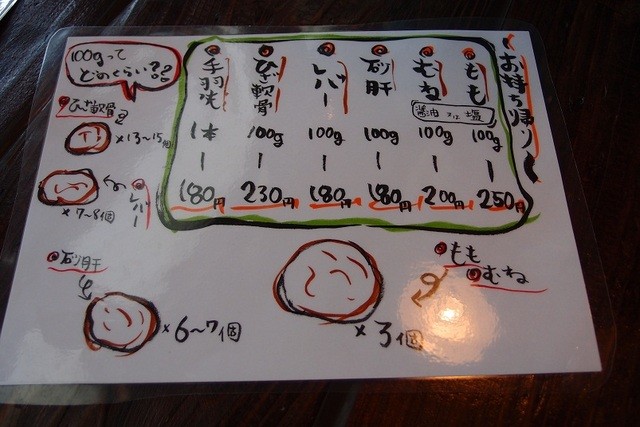 お持ち帰り
もも
100g
250円
むね
100g
200円
醤油 又は 塩
砂肝
100g
180円
レバー
100g
180円
ひざ軟骨
100g
230円
手羽先
1本
180円
100gって
どのくらい??
ひざ軟骨
×13~15個
レバー
×7~8個
砂肝
×6~7個
もも
むね
×3個